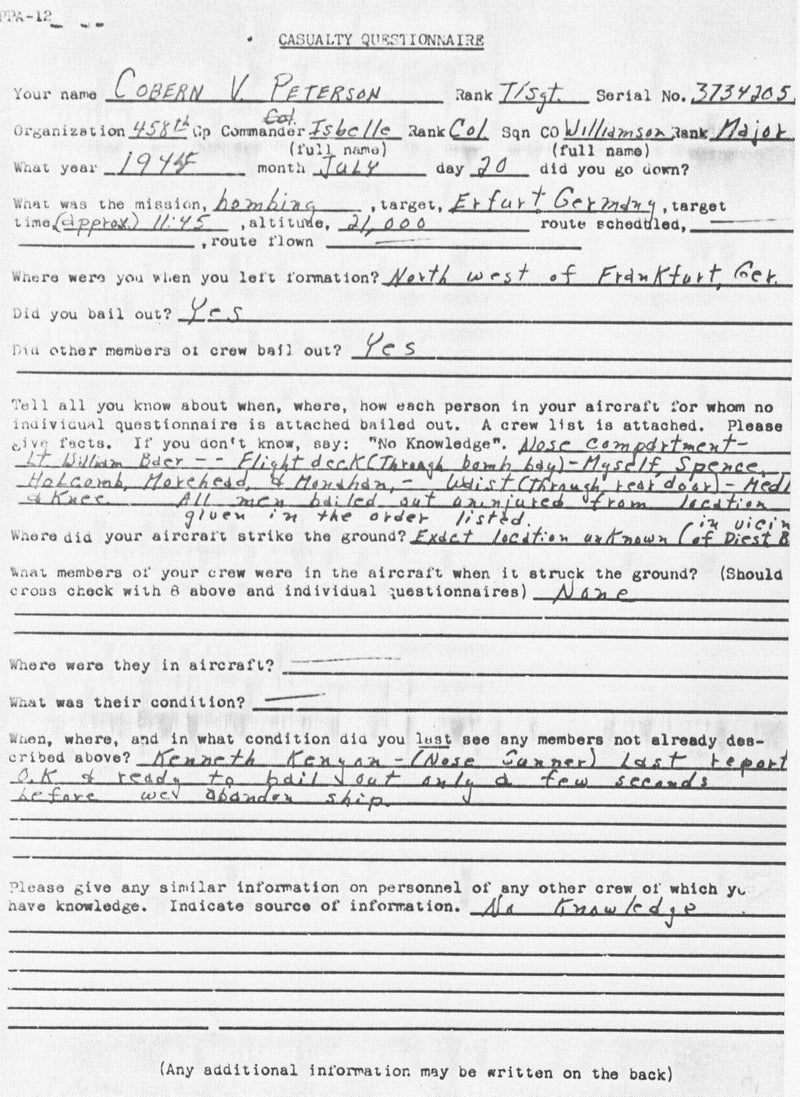 PPA-12
CASUALTY QUESTIONNAIRE
Your name COBERN V PETERSON Rank T/Sgt. Serial No. 3734205
Col.
Organization 458th Gp Commander Isbelle Rank Col Sqn CO Williamson Rank Major
(full name) (full name)
What year 1944 month July day 20 did you go down?
What was the mission, bombing, target, Erfurt, Germany, target
time, (approx) 11:45, altitude, 21,000 route scheduled,
, route flown
Where were you when you left formation? North west of Frankfurt, Ger.
Did you bail out? Yes
Did other members of crew bail out? Yes
Tell all you know about when, where, how each person in your aircraft for whom no
individual questionnaire is attached bailed out. A crew list is attached. Please
give facts. If you don't know, say: "No Knowledge". Nose compartment-
Lt William Baer -- Flight deck (Through bomb bay) - Myself, Spence,
Holcomb, Morehead, & Monahan, - Waist (Through rear door) - Medl
& Knee. All men bailed out uninjured from location
given in the order listed.
(in vicin
Where did your aircraft strike the ground? Exact location unknown (of Diest B
What members of your crew were in the aircraft when it struck the ground? (Should
cross check with 8 above and individual questionnaires) None
Where were they in aircraft?
What was their condition?
When, where, and in what condition did you last see any members not already des-
cribed above? Kenneth Kenyon - (Nose Gunner) last report
O.K & ready to bail out only a few seconds
before we abandon ship.
Please give any similar information on personnel of any other crew of which yo
have knowledge. Indicate source of information. No Knowledge
(Any additional information may be written on the back)